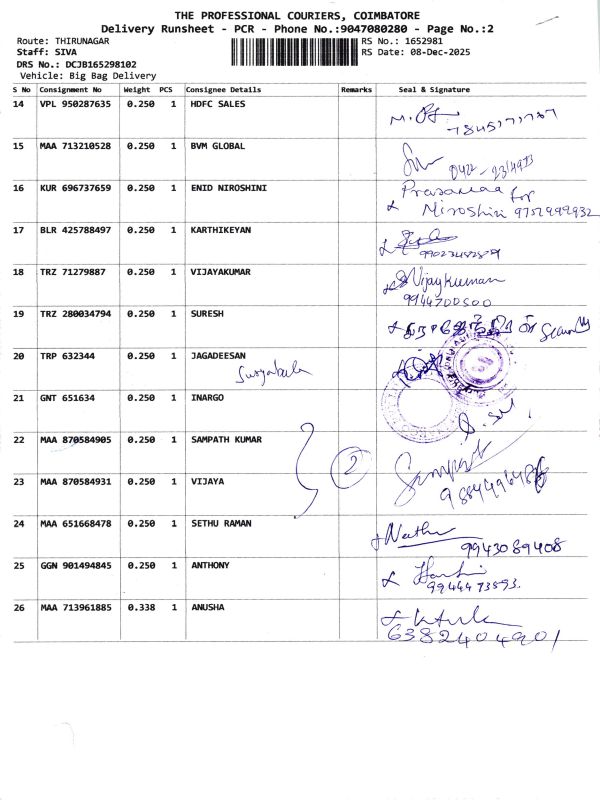 THE PROFESSIONAL COURIERS, COIMBATORE
Delivery Runsheet - PCR - Phone No.:9047080280 - Page No.:2
Route: THIRUNAGAR RS No.: 1652981
Staff: SIVA RS Date: 08-Dec-2025
DRS No.: DCJB165298102
Vehicle: Big Bag Delivery
S No Consignment No Weight PCS Consignee Details Remarks Seal & Signature
14 VPL 950287635 0.250 1 HDFC SALES
15 MAA 713210528 0.250 1 BVM GLOBAL
16 KUR 696737659 0.250 1 ENID NIROSHINI
for
Niroshini 9751999932
17 BLR 425788497 0.250 1 KARTHIKEYAN
18 TRZ 71279887 0.250 1 VIJAYAKUMAR Vijaykumar
9944700500
19 TRZ 280034794 0.250 1 SURESH Security
20 TRP 632344 0.250 1 JAGADEESAN
21 GNT 651634 0.250 1 INARGO
22 MAA 870584905 0.250 1 SAMPATH KUMAR Sampath
2
23 MAA 870584931 0.250 1 VIJAYA
24 MAA 651668478 0.250 1 SETHU RAMAN
9943089408
25 GGN 901494845 0.250 1 ANTHONY
9944473593.
26 MAA 713961885 0.338 1 ANUSHA
6382404901